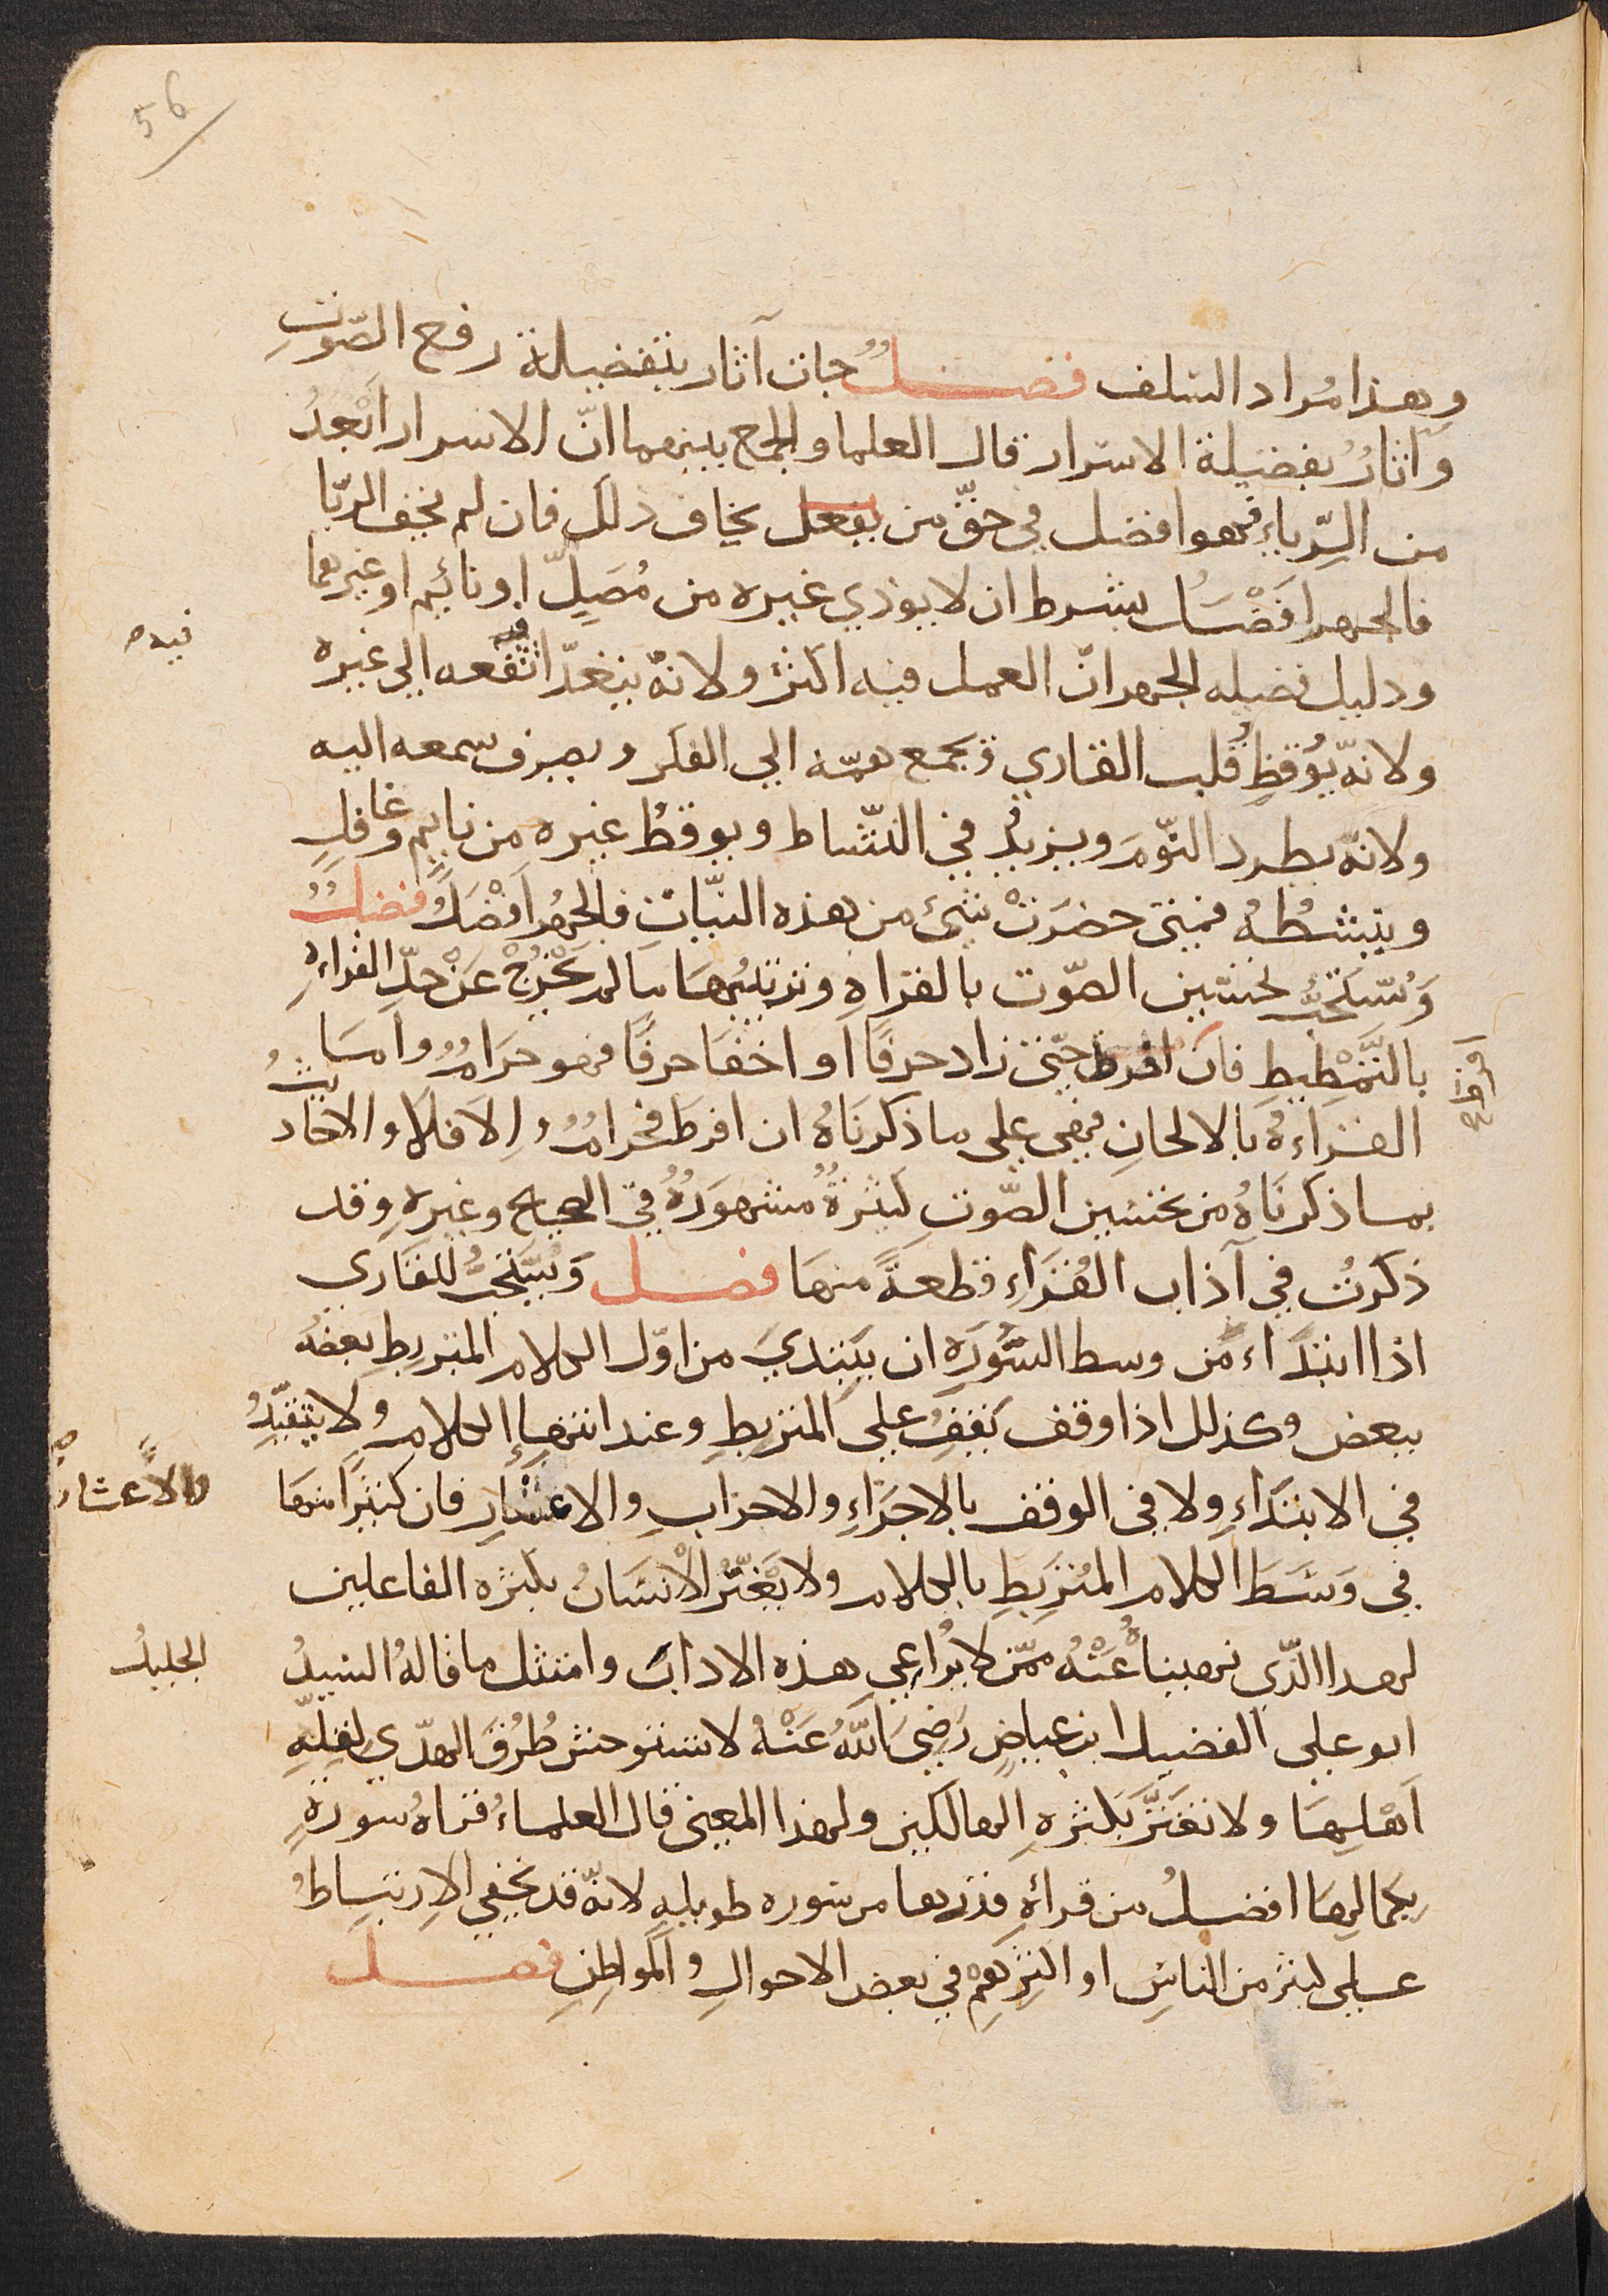 56
وهذا مُراد السلف فصل جات آثار بتفضيلة رفع الصّوتِ
وآثارُ بفضيلة الاسرار قال العلما والجمع بينهما انّ الاسرار اَبْعدُ
من الرِّياءِ فهو افضل في حقّ من يفعل يخاف ذلك فان لم يخف الريّا
فالجهر افْضَلُ بشرط ان لا يوذي غيره من مُصَلٍّ او نائمٍ او غيرهما
ودليل فضيله الجهر انّ العمل فيه اكثر ولانهُ يتعدّا نفعه الي غيره
فيه ص
ولانّه يُوقظِ قُلب القاري ويجمع همّه الي الفكر ويصرف سمعه اليه
ولانّه يطرد النّومَ ويزيدُ في النّشاط ويوقظُ غيره من نايمٍ وغافلٍ
وينشطُهُ فمتى حضرَتْ شئ من هذه النيّات فالجهرُ اَفْضَلُ فصل
وَيُسْتَحَبُّ تحسّين الصّوت بالقراهِ وتزيُنهَا مَا لم يَخْرُجْ عَنْ حدِّ القراءةِ
بالتَّمْطِيطِ فان افرط حتّى زاد حرفًا او اخفا حرفًا فهو حرَامُ وامَا
القرَاءةُ بالالحانِ فهي علي ما ذكرنَاهُ ان افرطَ فحرامُ والاَ فلا والاحاديثُ
بما ذكرنَاهُ من تحسين الصّوتِ كثيرةُ مشهورَةُ في الصحيح وغيرهِ وقد
ذكرتُ في آداب القُرَاءِ قطعةً منهَا فصل وَيُستَحَبُّ للقَاري
اذا ابتدَاء من وسط السُّورَةِ ان يبَتدي من اوّل الكلام المرتبطِ بعضُهُ
ببعض وكذلك اذا وقف يَقفُ علي المرتبطِ وعند انتهاءِ الكلامِ ولا يتقيّدُ
في الابتدَاءِ ولا في الوقف بالاجزَاءِ والاحزابِ والاعشارِ فان كثيرًا منهَا
والاَعشار
في وَسَطَ الكلام المُرتبِطِ بالكلام ولا يَغْترُ الانسَانُ بكثره الفاعلين
لهدا الّذي نهينا عُنْهُ ممّن لا يُراعي هذه الاداب وامتثل ما قالهُ السيدُ
الجليلُ
ابو علي الفضيل ابن عياضٍ رَضِيَ اللّهُ عَنْهُ لا تستوحش طُرُقَ الهدّي لقلّةِ
اَهْلِهَا ولا تغترَّ بكثرهِ الهالكين ولهذا المعنى قال العلماءُ قراهُ سورهٍ
بكمالِهَا افضلُ من قرائةِ قدرها من سوره طويلهٍ لانّه قد يخفي الاِرتبَاطُ
علي كثير من الناسِ او اكثرهمْ في بعض الاحوالِ والمواطِنِ فصل